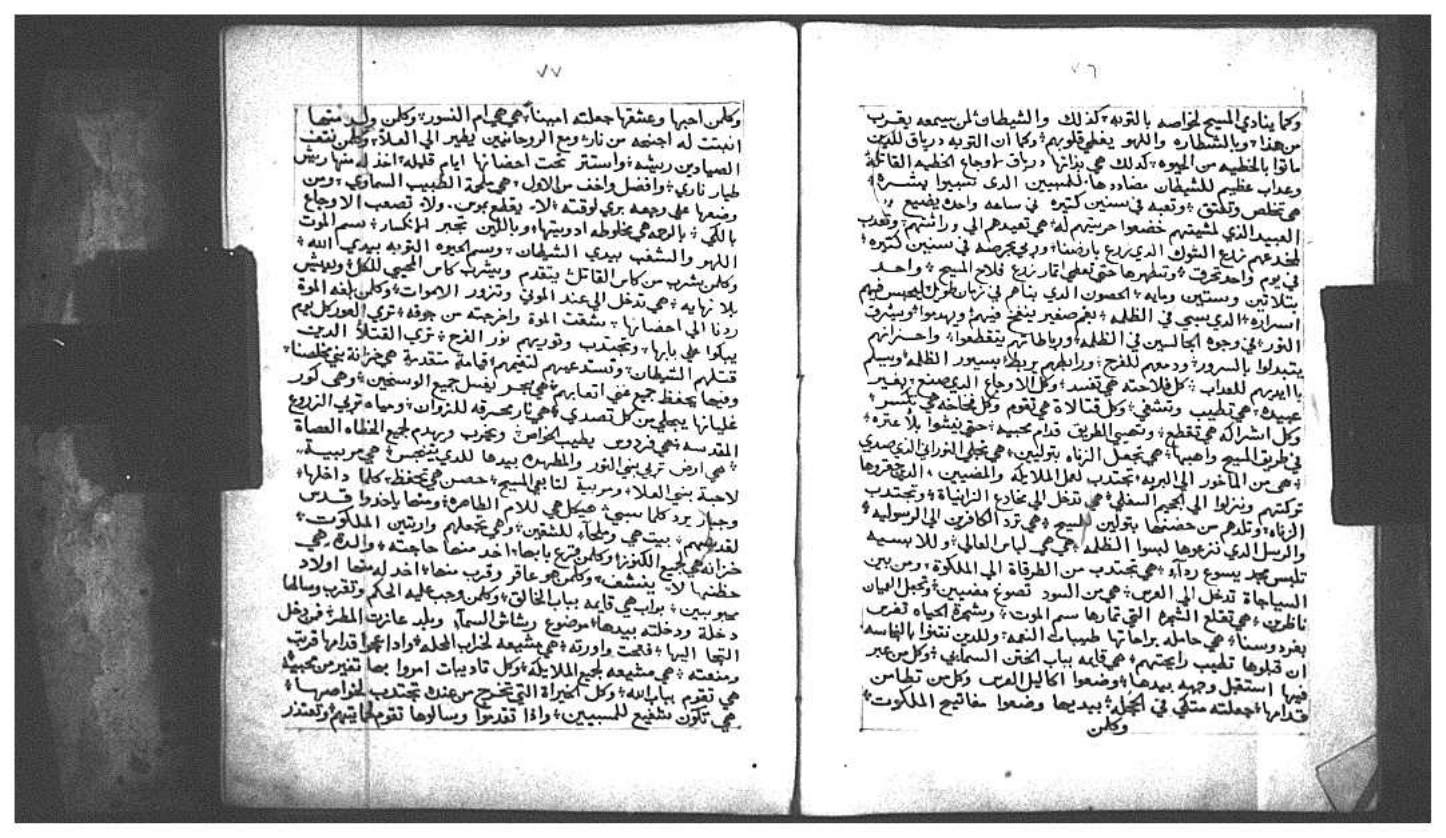 ٧٦
وكما ينادي المسيح لخواصه بالتوبه كذلك والشيطان لمن يسمعه يقرب
من هذا وبالشطاره واللهو يغطي قلوبهم وكما ان التوبه درياق للدين
ماتوا بالخطيه من الحيوه كدلك هي بذاتها درياق لاوجاع الخطيه القاتلة
وعداب عظيم للشيطان مضاددها للمسبيين الدى تسبيوا بشره
هي تخلص وتعتق وتعبه في سنين كتيره في ساعه واحده يضيع
العبيد الذي لمشيتهم خضعوا حريتهم له هي تعيدهم الى وراثتهم وتعدب
لمخدعهم زارع الشوك الدي زرع بارضنا وربي بحرصه في سنين كتيره
في يوم واحد تحرق وتطهرها حتى تعطي اتمار زرع فلاح المسيح واحد
بتلاتين وستين ومايه الحصون الدي بناهم في زمان طويل ليحبس فيهم
اسراره الدي سبي في الظلمه بفم صغير ينفخ فيهم ويهدموا ويشرق
النور في وجوه الجالسين في الظلمه ورباطاتهم يتقطعوا واحزانهم
يتبدلوا بالسرور ودمعهم للفرح ورابطهم يربط بسيور الظلمه ويسلم
بالايديهم للعداب كل فلاحته هي تفسد وكل الاوجاع الدي صنع بغير
عبيده هي تطيب وتشفي وكل قتالاة هي تقوم وكل فخاخه هي تكسر
وكل اشراكه هي تقطع وتحصي الطريق قدام محبيه حتى يمشوا بلا عتره
في طريق المسيح واهبها هي تجعل الزناه بتوليين هي تجلي النوراني الذي صدي
هي من الماخور الى البريه تجتدب لعمل الملايكه والمضيين الدي حقروها
تركتهم ونزلوا الى الجحيم السفلي هي تدخل الى مخادع الزانياة وتجتدب
الزناه وتلدهم من حضنها بتولين للمسيح هي ترد الكافرين الى الرسوليه
والرسل الدي نزعوها لبسوا الظلمه هي هي لباس العالي وللابسيه
تلبس مجد يسوع ردآء هي تجتدب من الطرقاة الى الملكوة ومن بين
السياجاة تدخل الى العرس هي من السود تصوغ مضيين وتجعل العميان
ناظرين هي تقلع الشجرة التي تمارها سم الموت وشجرة الحياه تغرس
بفردوسنا هي حامله براحاتها طيبات النعمه وللدين نتنوا بالنجاسه
ان قبلوها تطيب رايحتهم هي قايمه بباب الختن السمايي وكل من عبر
فيها استقبل وجهه بيدها وضعوا اكاليل العرس وكل من تطامن
قدامها جعلته متكي في الحجله بيديها وضعوا مفاتيح الملكوت
وكلمن
٧٧
وكلمن احبها وعشقها جعلته امينا هي هي ام النسور وكلمن ولد منها
انبتت له اجنحه من نار ومع الروحانيين يطير الى العلا وكلمن نتف
الصيادين ريشه واستتر تحت احضانها ايام قليله اخذ له منها ريش
طيار ناري وافضل واخف من الاول هي ملحمة الطبيب السماوي ومن
وضعها على وجعه بري لوقته لا يقطع بموس ولا تصعب الاوجاع
بالكي بالرحمه هي مخلوطه ادويتها وباللين تجبر الانكسار سم الموت
اللهو والشغب بيدي الشيطان وسم الحيوه التوبه بيدي الله
وكلمن يشرب من كاس القاتل يتقدم ويشرب كاس المحيي للكل ويعيش
بلا نهايه هي تدخل الى عند الموتى وتزور الاموات وكلمن بلعه الموة
ردنا الى احضانها شقت الموة واخرجته من جوفه ترى العور كل يوم
يبكوا على بابها وتجتدب وتوريهم نور الفرح ترى القتلآ الدين
قتلهم الشيطان وتستدعيهم لتقيمهم قيامة متقدمة هي خزانة بني مخلصنا
وفيها يحفظ جميع غني اتعابهم هي بحر يغسل جميع الوسخين وهي كور
غليانها يجلي من كل تصدي هي نار محرقه للزوان ومياه تربي الزروع
المقدسه هي فردوس يطيب الخواص ويخرب ويهدم لجميع الخطاه العصاة
هي ارض تربي بني النور والمطهره بيدها للدي يتنجس هي مربيه
لاحبة بني العلا ومربية لتابعي المسيح حصن هي تحفظ كلما داخلها
وجبار يرد كلما سبي هيكل هي للام الطاهرة ومنها ياخدوا قدس
لقدسهم بيت هي وملجآء للشقيين وهي تجعلهم وارتين الملكوت
خزانه هي لجميع الكنوز وكلمن قرع بابها اخد منها حاجته والدة هي
حظنها لا ينشف وكلمن هو عاقر وقرب منها اخد له منها اولاد
محبوبين بواب هي قايمه بباب الخالق وكلمن وجب عليه الحكم وتقرب وسالها
دخلة ودخلته بيدها موضوع رشاش السمآء وبلد عازت المطر فمن دخل
التجا اليها فتحت واورته هي مشيعه لخراب المحله واداعموا قدامها قربت
ومنعته هي مشيعه لجميع الملايكه وكل تاديبات امروا بها تغير من محبيه
هي تقوم بباب الله وكل الخيراة التي تخرج من عنده تجتدب لخواصها
هي تكون شفيع للمسبيين وادا تقدموا وسالوها تقوم لحمايتهم وتعتدر